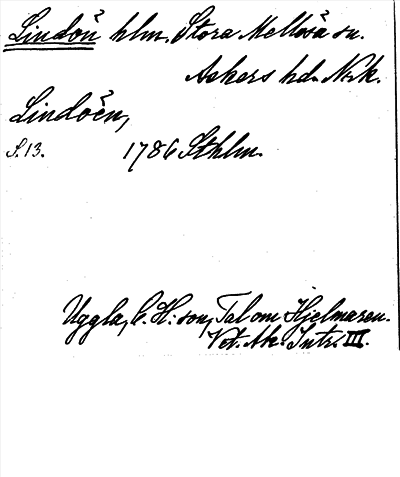 Lindön hlm. Stora Mellösa sn.
Askers hd. Nrk.
Lindöen,
S. 13. 1786 Sthlm.
Uggla, C. H:son, Tal om Hjelmaren.
Vet. Ak. Intr. III.